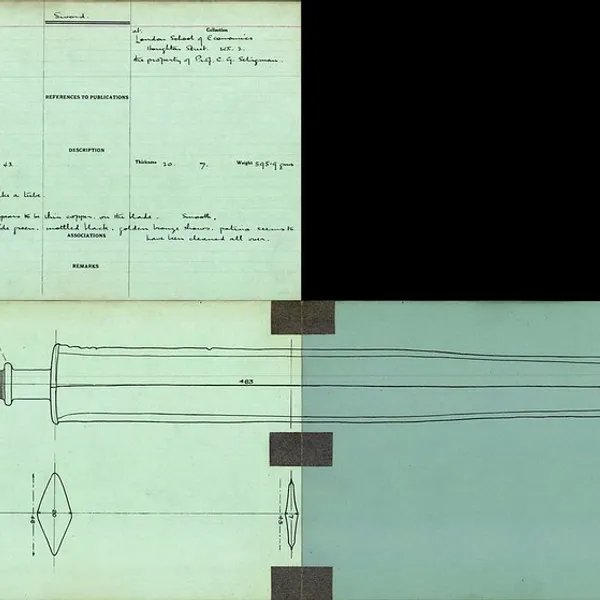 Sword.
at. Collection
London School of Economics
Houghton Street. WC. 2.
the property of Prof. C. G. Seligman.
REFERENCES TO PUBLICATIONS
DESCRIPTION
43 Thickness 20. 7. Weight 595.9 gms
like a tube.
to be thin copper. on the blade. Smooth.
green. mottled black. golden bronze shows. patina seems to
ASSOCIATIONS have been cleaned all over.
REMARKS
463
20
7